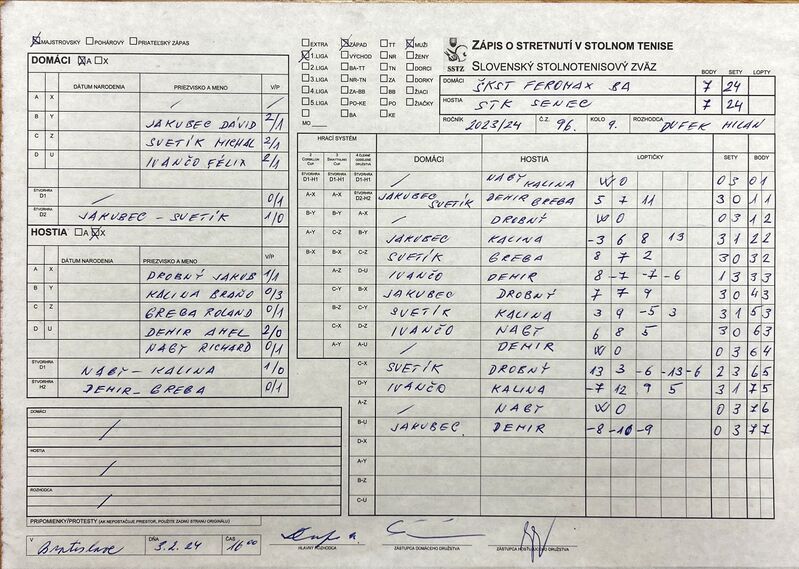 MAJSTROVSKÝ POHÁROVÝ PRIATEĽSKÝ ZÁPAS
DOMÁCI A X
DÁTUM NARODENIA PRIEZVISKO A MENO V/P
A X / /
B Y JAKUBEC DÁVID 2/1
C Z SVETÍK MICHAL 2/1
D U IVANČO FÉLIX 2/1
ŠTVORHRA D1 / 0/1
ŠTVORHRA D2 JAKUBEC - SVETÍK 1/0
HOSTIA A X
DÁTUM NARODENIA PRIEZVISKO A MENO V/P
A X DROBNÝ JAKUB 1/1
B Y KALINA BRAŇO 0/3
C Z GREBA ROLAND 0/1
D U DEMIR AMEL 2/0
NAGY RICHARD 0/1
ŠTVORHRA D1 NAGY - KALINA 1/0
ŠTVORHRA H2 DEMIR - GREBA 0/1
DOMÁCI
/
HOSTIA
/
ROZHODCA
/
PRIPOMIENKY/PROTESTY (AK NEPOSTAČUJE PRIESTOR, POUŽITE ZADNÚ STRANU ORIGINÁLU)
V Bratislave DŇA 3.2.24 ČAS 16 00
HLAVNÝ ROZHODCA ZÁSTUPCA DOMÁCEHO DRUŽSTVA ZÁSTUPCA HOSŤUJÚCEHO DRUŽSTVA
EXTRA ZÁPAD TT MUŽI
1.LIGA VÝCHOD NR ŽENY
2.LIGA BA-TT TN DORCI
3.LIGA NR-TN ZA DORKY
4.LIGA ZA-BB BB ŽIACI
5.LIGA PO-KE PO ŽIAČKY
BA KE
MO
SSTZ
ZÁPIS O STRETNUTÍ V STOLNOM TENISE
SLOVENSKÝ STOLNOTENISOVÝ ZVÄZ
BODY SETY LOPTY
DOMÁCI ŠKST FEROMAX BA 7 24
HOSTIA STK SENEC 7 24
ROČNÍK 2023/24 Č.Z. 96. KOLO 9. ROZHODCA DUFEK MILAN
HRACÍ SYSTÉM
DOMÁCI HOSTIA LOPTIČKY SETY BODY
ŠTVORHRA D1-H1 ŠTVORHRA D1-H1 ŠTVORHRA D1-H1 / NAGY KALINA WO 0 3 0 1
A-X A-X ŠTVORHRA D2-H2 JAKUBEC SVETÍK DEMIR GREBA 5 7 11 3 0 1 1
B-Y B-Y A-X / DROBNÝ WO 0 3 1 2
A-Y C-Z B-Y JAKUBEC KALINA -3 6 8 13 3 1 2 2
B-X B-X C-Z SVETÍK GREBA 8 7 2 3 0 3 2
A-Z D-U IVANČO DEMIR 8 -7 -7 -6 1 3 3 3
C-Y B-X JAKUBEC DROBNÝ 7 7 9 3 0 4 3
B-Z C-Y SVETÍK KALINA 3 9 -5 3 3 1 5 3
C-X D-Z IVANČO NAGY 6 8 5 3 0 6 3
A-Y A-U / DEMIR WO 0 3 6 4
C-X SVETÍK DROBNÝ 13 3 -6 -13 -6 2 3 6 5
D-Y IVANČO KALINA -7 12 9 5 3 1 7 5
A-Z / NAGY WO 0 3 7 6
B-U JAKUBEC DEMIR -8 -10 -9 0 3 7 7
D-X
A-Y
B-Z
C-U